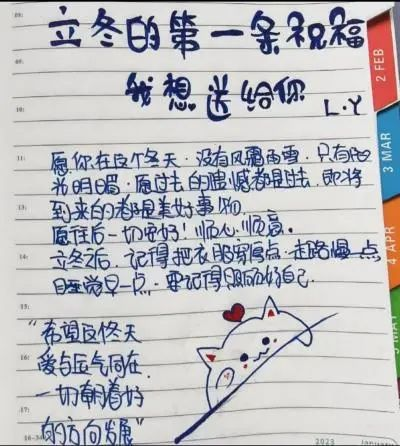 立冬的第一条祝福
我想送给你 L.Y
愿你在这个冬天.没有风霜雨雪.只有阳
光明媚.愿过去的遗憾都是过去.即将
到来的都是美好事物
愿往后一切安好!顺心.顺意.
立冬后.记得把衣服穿厚点.走路慢一点
睡觉早一点.要记得照顾好自己.
"希望这个冬天
爱与运气同在
一切朝着好
的方向发展"
09:
10:
11:
12:
13:
14:
15:
16:
17:
2023 January
2 FEB
3 MAR
4 APR